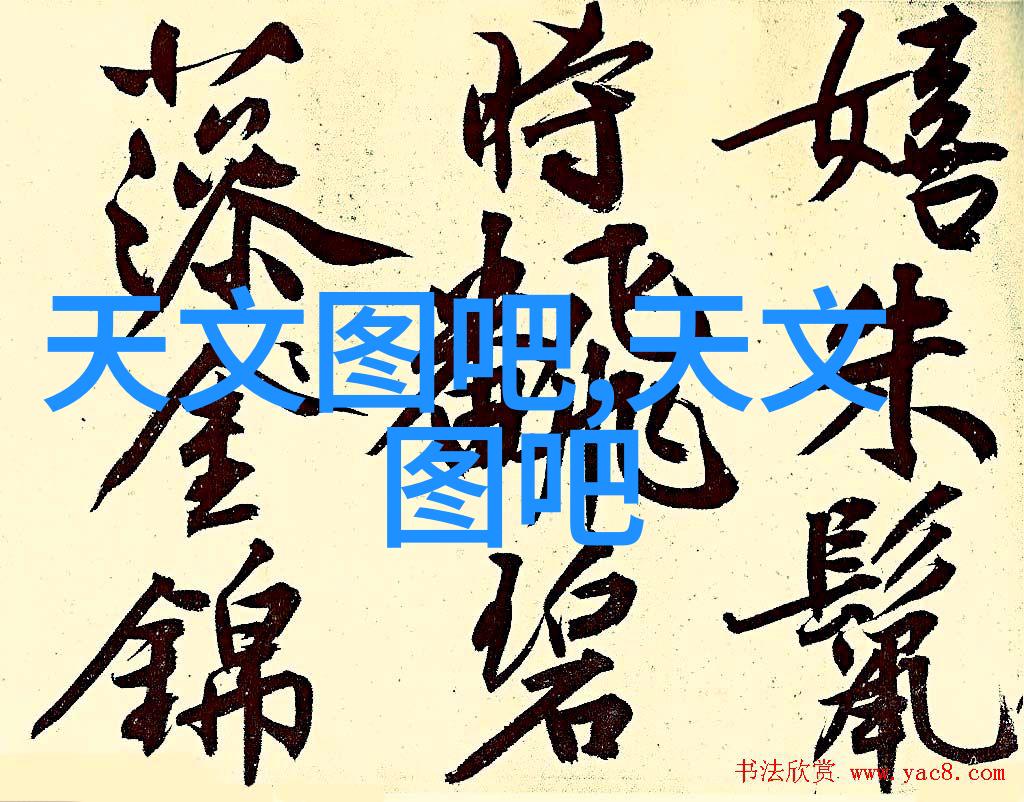 嬉朱鬣
時飜碧
藻金錦
天文图吧,天文
图吧
书法欣赏 www.yac8.com